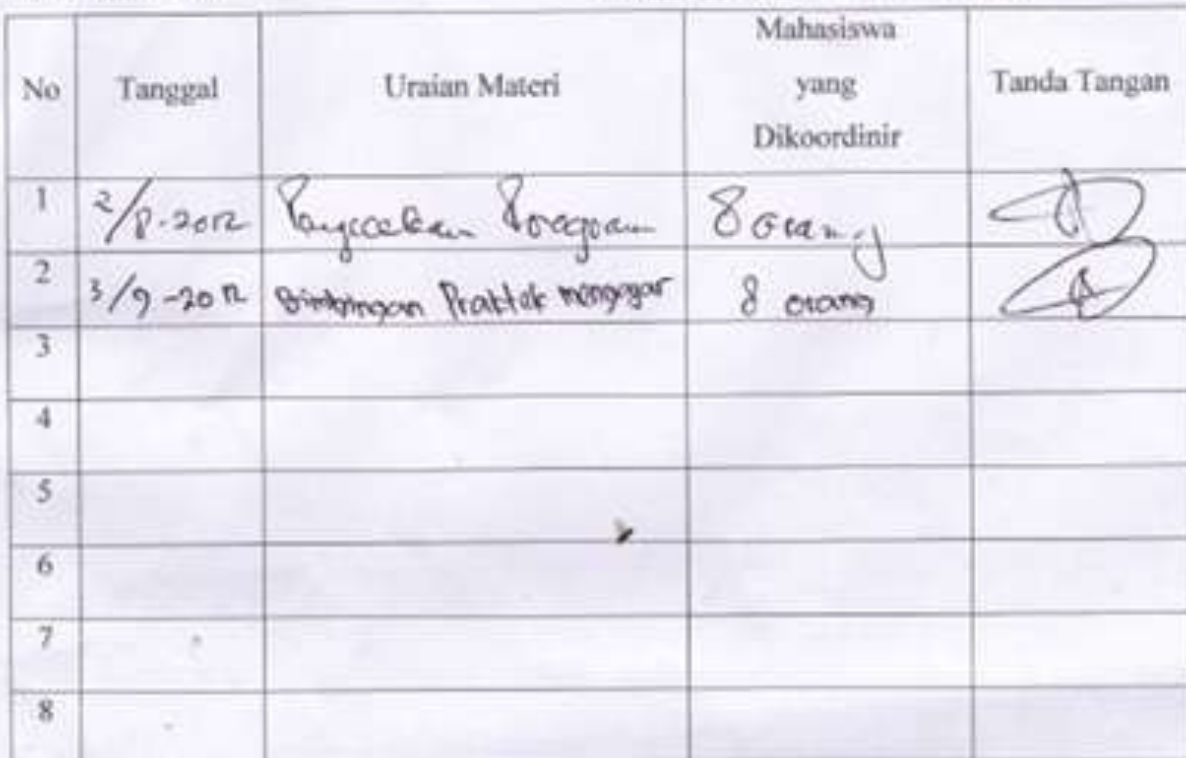 No Tanggal Uraian Materi Mahasiswa yang Dikoordinir Tanda Tangan
1 2/8-2012 8 orang
2 3/9-2012 Bimbingan Praktek mengajar 8 orang
3
4
5
6
7
8